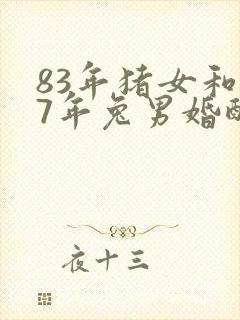 83年猪女和
7年兔男婚配
夜十三